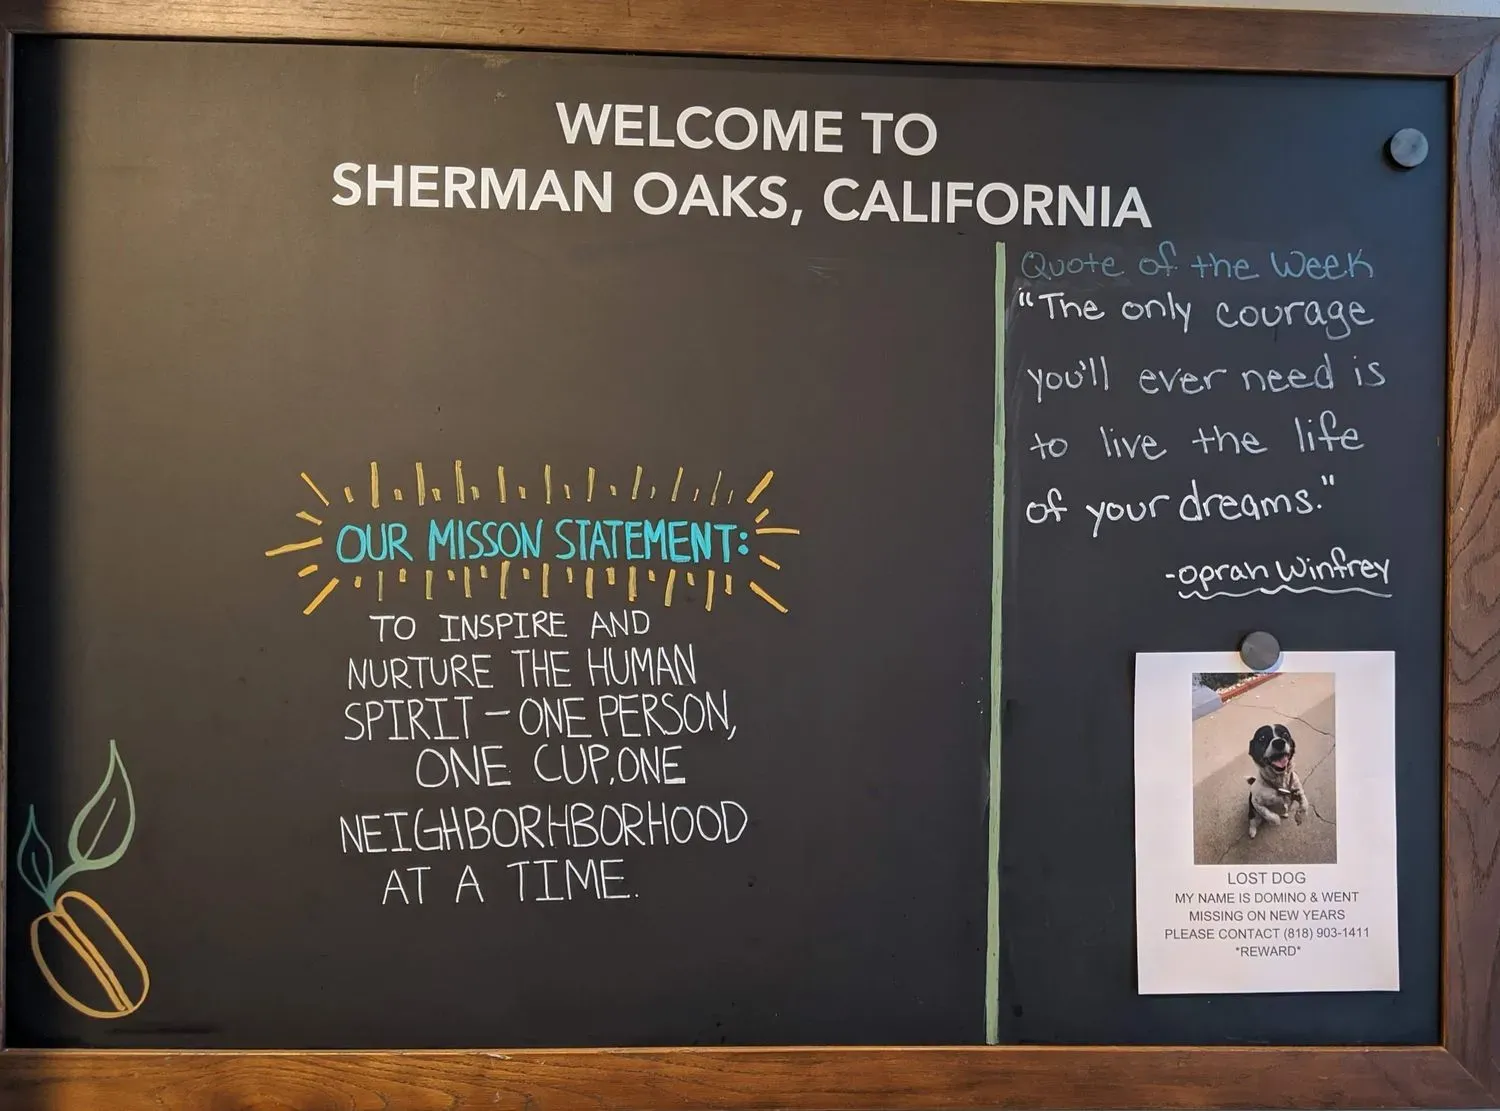 WELCOME TO
SHERMAN OAKS, CALIFORNIA
OUR MISSON STATEMENT:
TO INSPIRE AND
NURTURE THE HUMAN
SPIRIT – ONE PERSON,
ONE CUP, ONE
NEIGHBORHBORHOOD
AT A TIME.
Quote of the Week
"The only courage
you'll ever need is
to live the life
of your dreams."
-Oprah Winfrey
LOST DOG
MY NAME IS DOMINO & WENT
MISSING ON NEW YEARS
PLEASE CONTACT (818) 903-1411
*REWARD*